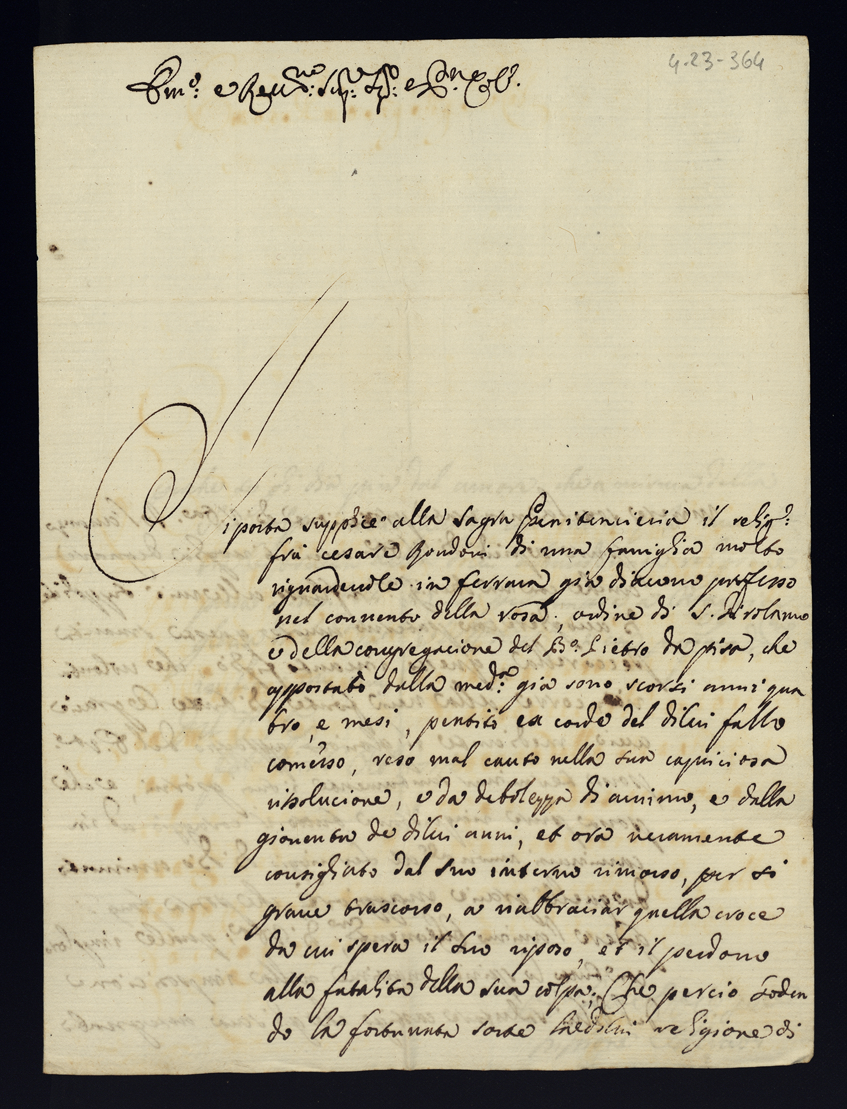 4-23-364
Em.o: e Reu.mo: Sig.r e
Si porta supplice alla sagra Penitencieria il relig.o:
frà cesare Rondoni di una famiglia molto
riguardeuole in ferrara già diacono professo
nel conuento della rosa, ordine di S. Girolamo
e della congregacione del B.o: Pietro da pisa, che
appostatò dalla med.ma: già sono scorsi anni qua
tro, e mesi, pentito ex corde del dilui fallo
comesso, reso mal cauto nella sua capriciosa
rissolucione, e da debolezza di animo, e dalla
giouentù de dilui anni, et ora veramente
consigliato dal suo interno rimorso, per sì
graue trascorso, a riabbraciar quella croce
da cui spera il suo riposo, et il perdono
alla fatalità della sua colpa; Che perciò Goden
do la fortunata sorte la dilui religione di